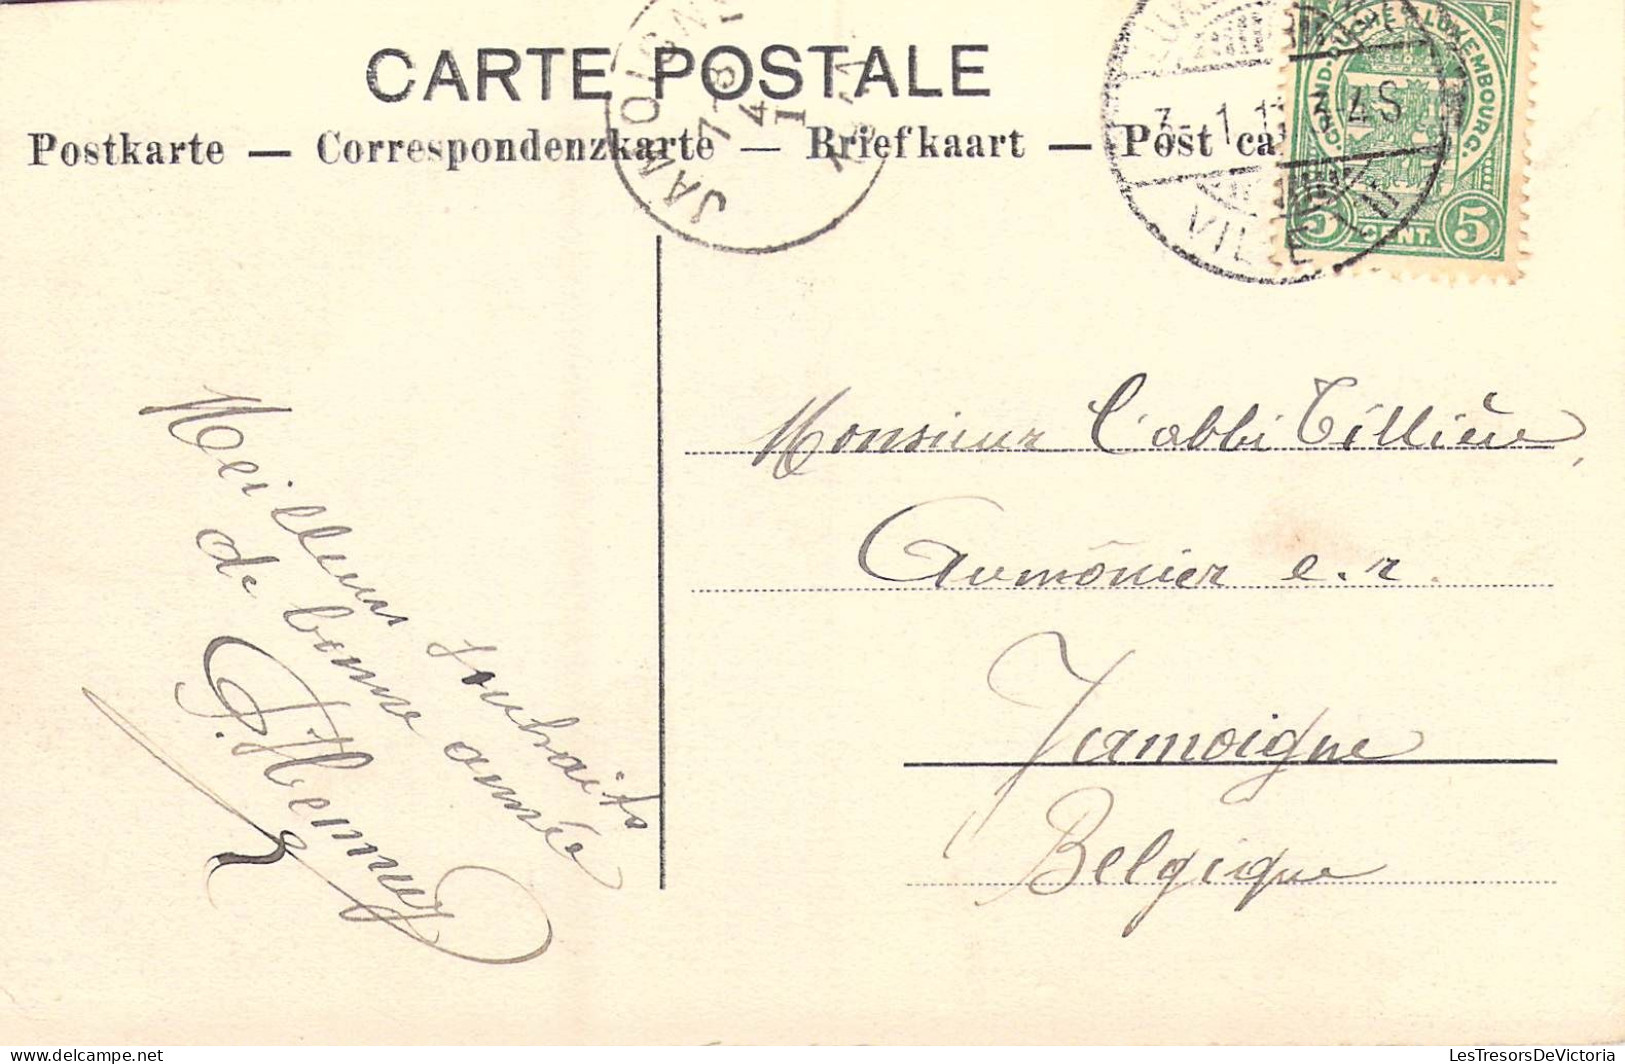 CARTE POSTALE
Postkarte — Correspondenzkarte — Briefkaart — Post ca
JAMOIGNE
7-8
4
I
GRAND-DUCHÉ DE LUXEMBOURG.
5 CENT. 5
3.1.11 4S
VILLE
Meilleurs souhaits
de bonne année
Monsieur l'abbé Tillière,
Aumônier e.r.
Jamoigne
Belgique
LesTresorsDeVictoria